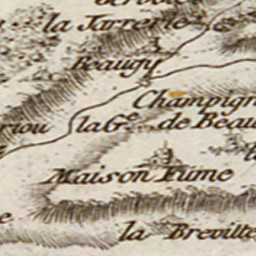 la Jarrerie
Beaugy
Champign
riou la Gᵉ. de Beau
Maison Fume
la Breville